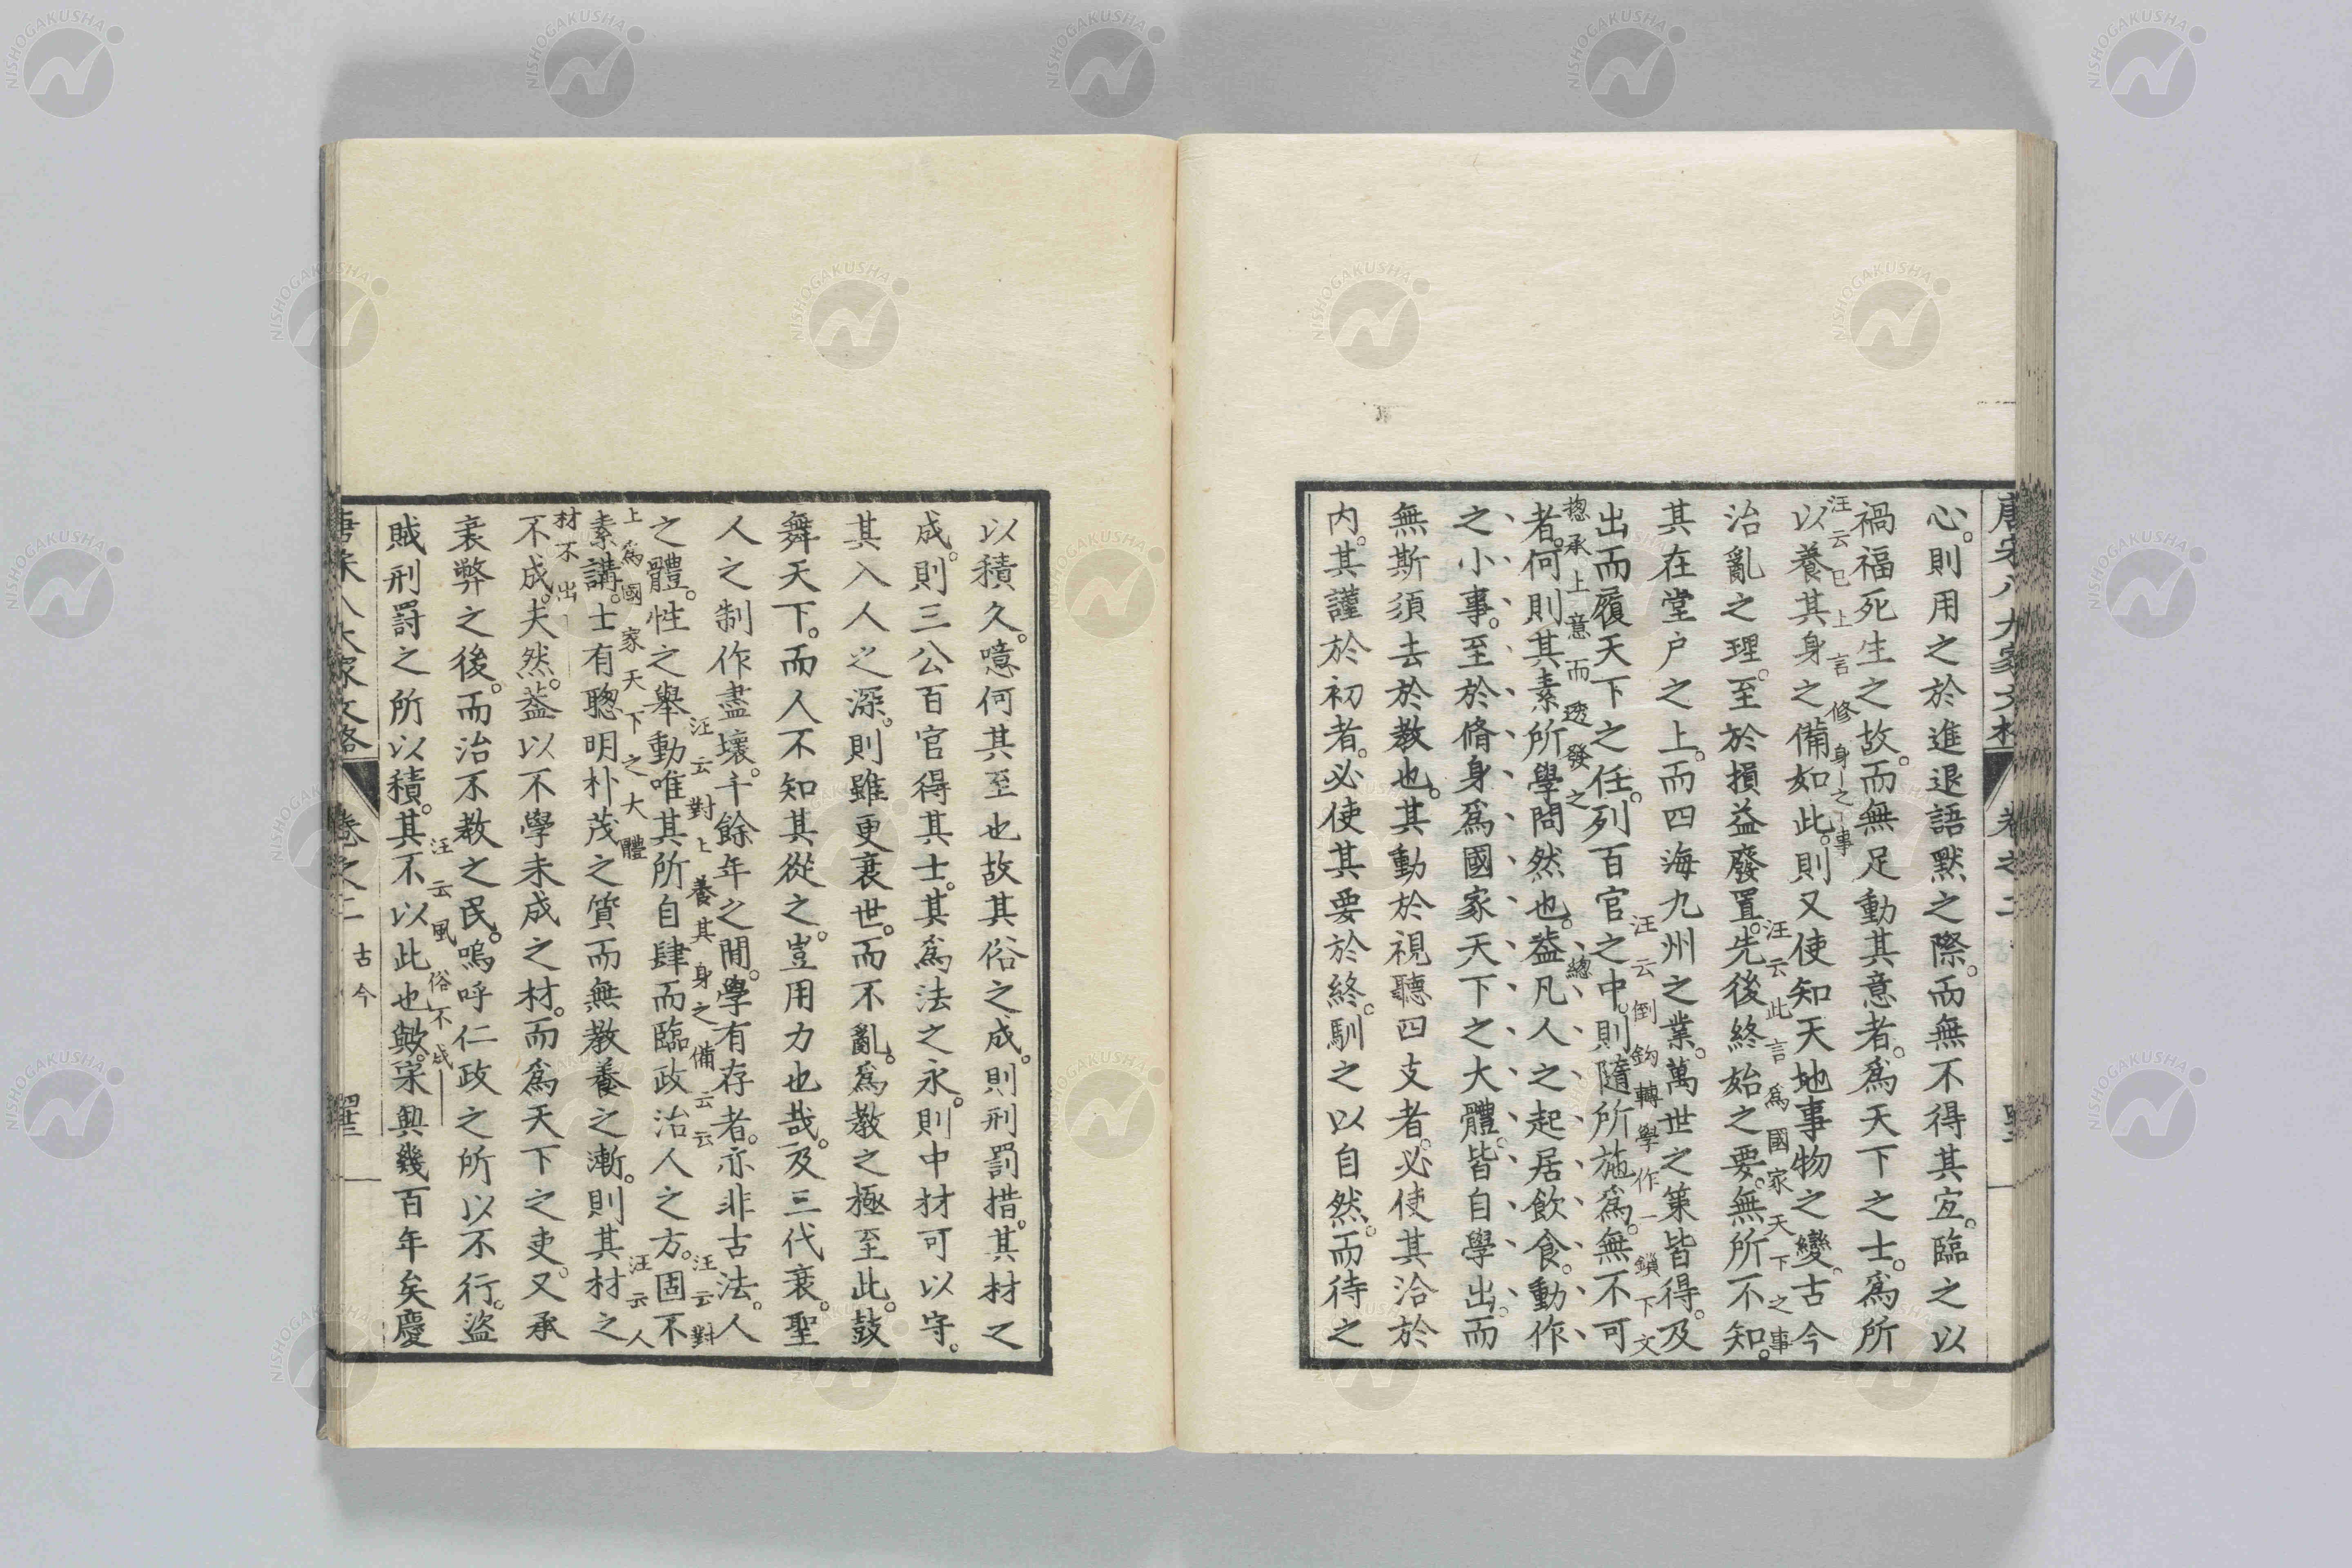 心。則用之於進退語默之際。而無不得其宜。臨之以
禍福死生之故。而無足動其意者。爲天下之士。爲所
汪云已上言修身之事
以養其身之備如此。則又使知天地事物之變。古今
治亂之理。至於損益廢置。先後終始之要。無所不知。
汪云此言爲國家天下之事
其在堂户之上。而四海九州之業。萬世之策皆得。及
出而履天下之任。列百官之中。則隨所施爲。無不可
汪云倒鈎轉學作一鎖下文
者。何則其素所學問然也。葢凡人之起居飲食。動作
揔承上意而透發之
總
之小事。至於脩身爲國家天下之大體。皆自學出。而
無斯須去於教也。其動於視聽四支者。必使其洽於
内。其謹於初者。必使其要於終。馴之以自然。而待之
以積久。噫何其至也故其俗之成。則刑罰措。其材之
成。則三公百官得其士。其爲法之永。則中材可以守。
其入人之深。則雖更衰世。而不亂。爲教之極至此。鼓
舞天下。而人不知其從之。豈用力也哉。及三代衰。聖
人之制作盡壞。千餘年之間。學有存者。亦非古法。人
汪云對上養其身之備云云
之體。性之舉動唯其所自肆而臨政治人之方。固不
汪云對上爲國家天下之大體
素講。士有聰明朴茂之質而無教養之漸。則其材之
汪云人材不出
不成。夫然。葢以不學未成之材。而爲天下之吏。又承
衰弊之後。而治不教之民。嗚呼仁政之所以不行。盜
汪云風俗不成
賊刑罰之所以積。其不以此也歟。宋興幾百年矣慶
唐宋八大家文格
卷之二
古今
唐宋八大家文格
卷之二